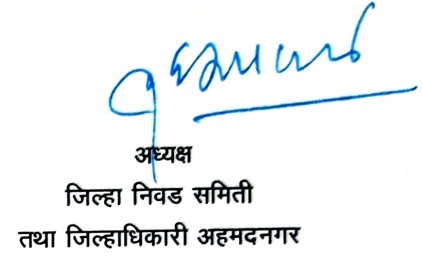 अध्यक्ष
जिल्हा निवड समिती
तथा जिल्हाधिकारी अहमदनगर